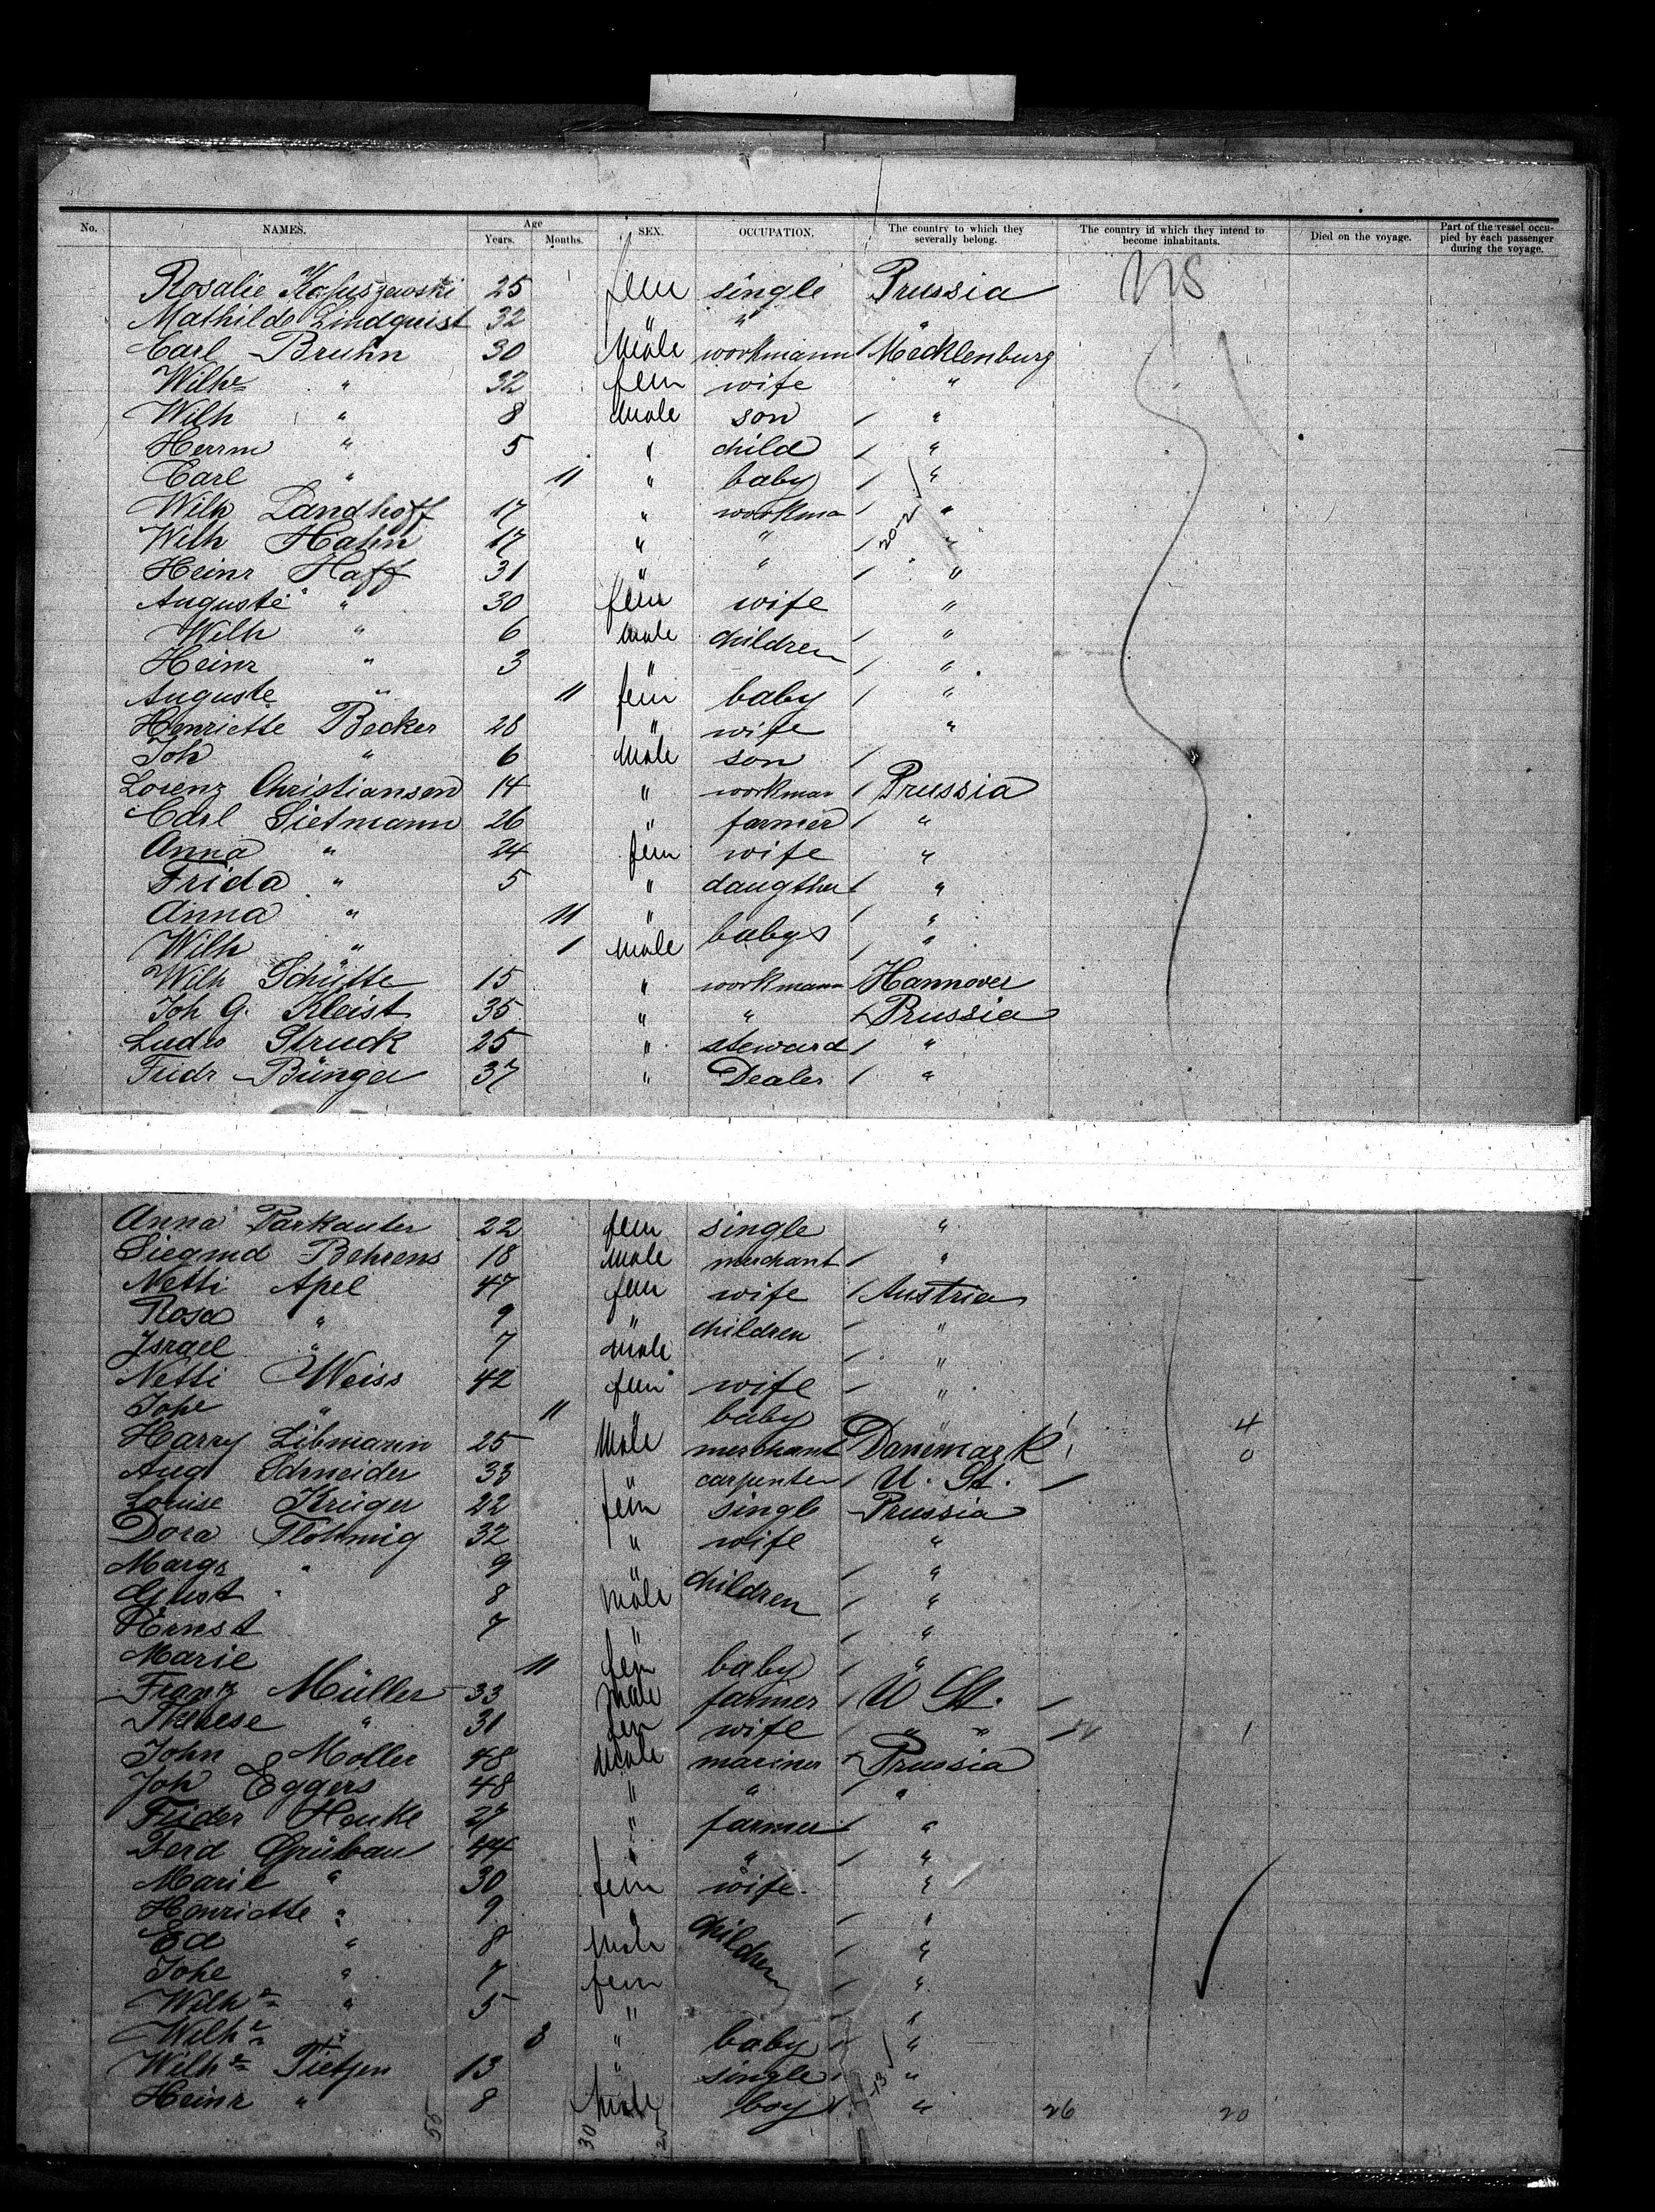 No. NAMES. Age Years. Months. SEX. OCCUPATION. The country to which they severally belong. The country in which they intend to become inhabitants. Died on the voyage. Part of the vessel occupied by each passenger during the voyage.
Rosalie 25 fem single Prussia US
Mathilde Lindquist 32 " " "
Carl Bruhn 30 Male workmann Mecklenburg
Wilhe " 32 fem wife "
Wilh " 8 Male son "
Herrm " 5 " child "
Carl " 11 " baby "
Wilh Landhoff 17 " workma "
Wilh Hahn 17 " " "
Heinr Haff 31 " " "
Auguste " 30 fem wife "
Wilh " 6 Male children "
Heinr " 3 " "
Auguste " 11 fem baby "
Henriette Becker 28 " wife "
Joh " 6 Male son
Lorenz Christiansen 14 " workman Prussia
Carl Sietmann 26 " farmer "
Anna " 24 fem wife "
Frida " 5 " daugther "
Anna " 11 " babys "
Wilh " 1 Male "
Wilh Schütte 15 " workmann Hannover
Joh G. Kleist 35 " " Prussia
Ludw Struck 25 " steward "
Friedr Bünger 37 " Dealer "
Anna Parkauter 22 fem single "
Siegmd Behrens 18 Male merchant "
Netti Apel 47 fem wife Austria
Rosa " 9 " children "
Israel " 7 Male "
Netti Weiss 42 fem wife "
Johe " 11 " baby " 4
Harry Libmann 25 Male merchant Danemark 0
Aug Schneider 33 " carpenter U. St.
Louise Krüger 22 fem single Prussia
Dora 32 " wife "
Margr " 9 " children "
Gust " 8 Male "
Ernst 7 " "
Marie 11 fem baby "
Franz Müller 33 Male farmer U St.
Therese " 31 fem wife " " 1
John Moller 48 Male mariner Prussia
Joh Eggers 48 " " "
Frieder Henke 27 " farmer "
Ferd Grübau 44 " " "
Marie " 30 fem wife "
Henriette " 9 " children "
Ed " 8 Male "
Johe " 7 fem "
Wilhe " 5 " "
Wilhe " 3 " baby "
Wilhe Tietjen 13 " single "
Heinr " 8 Male boy " 26 20
55 30 25